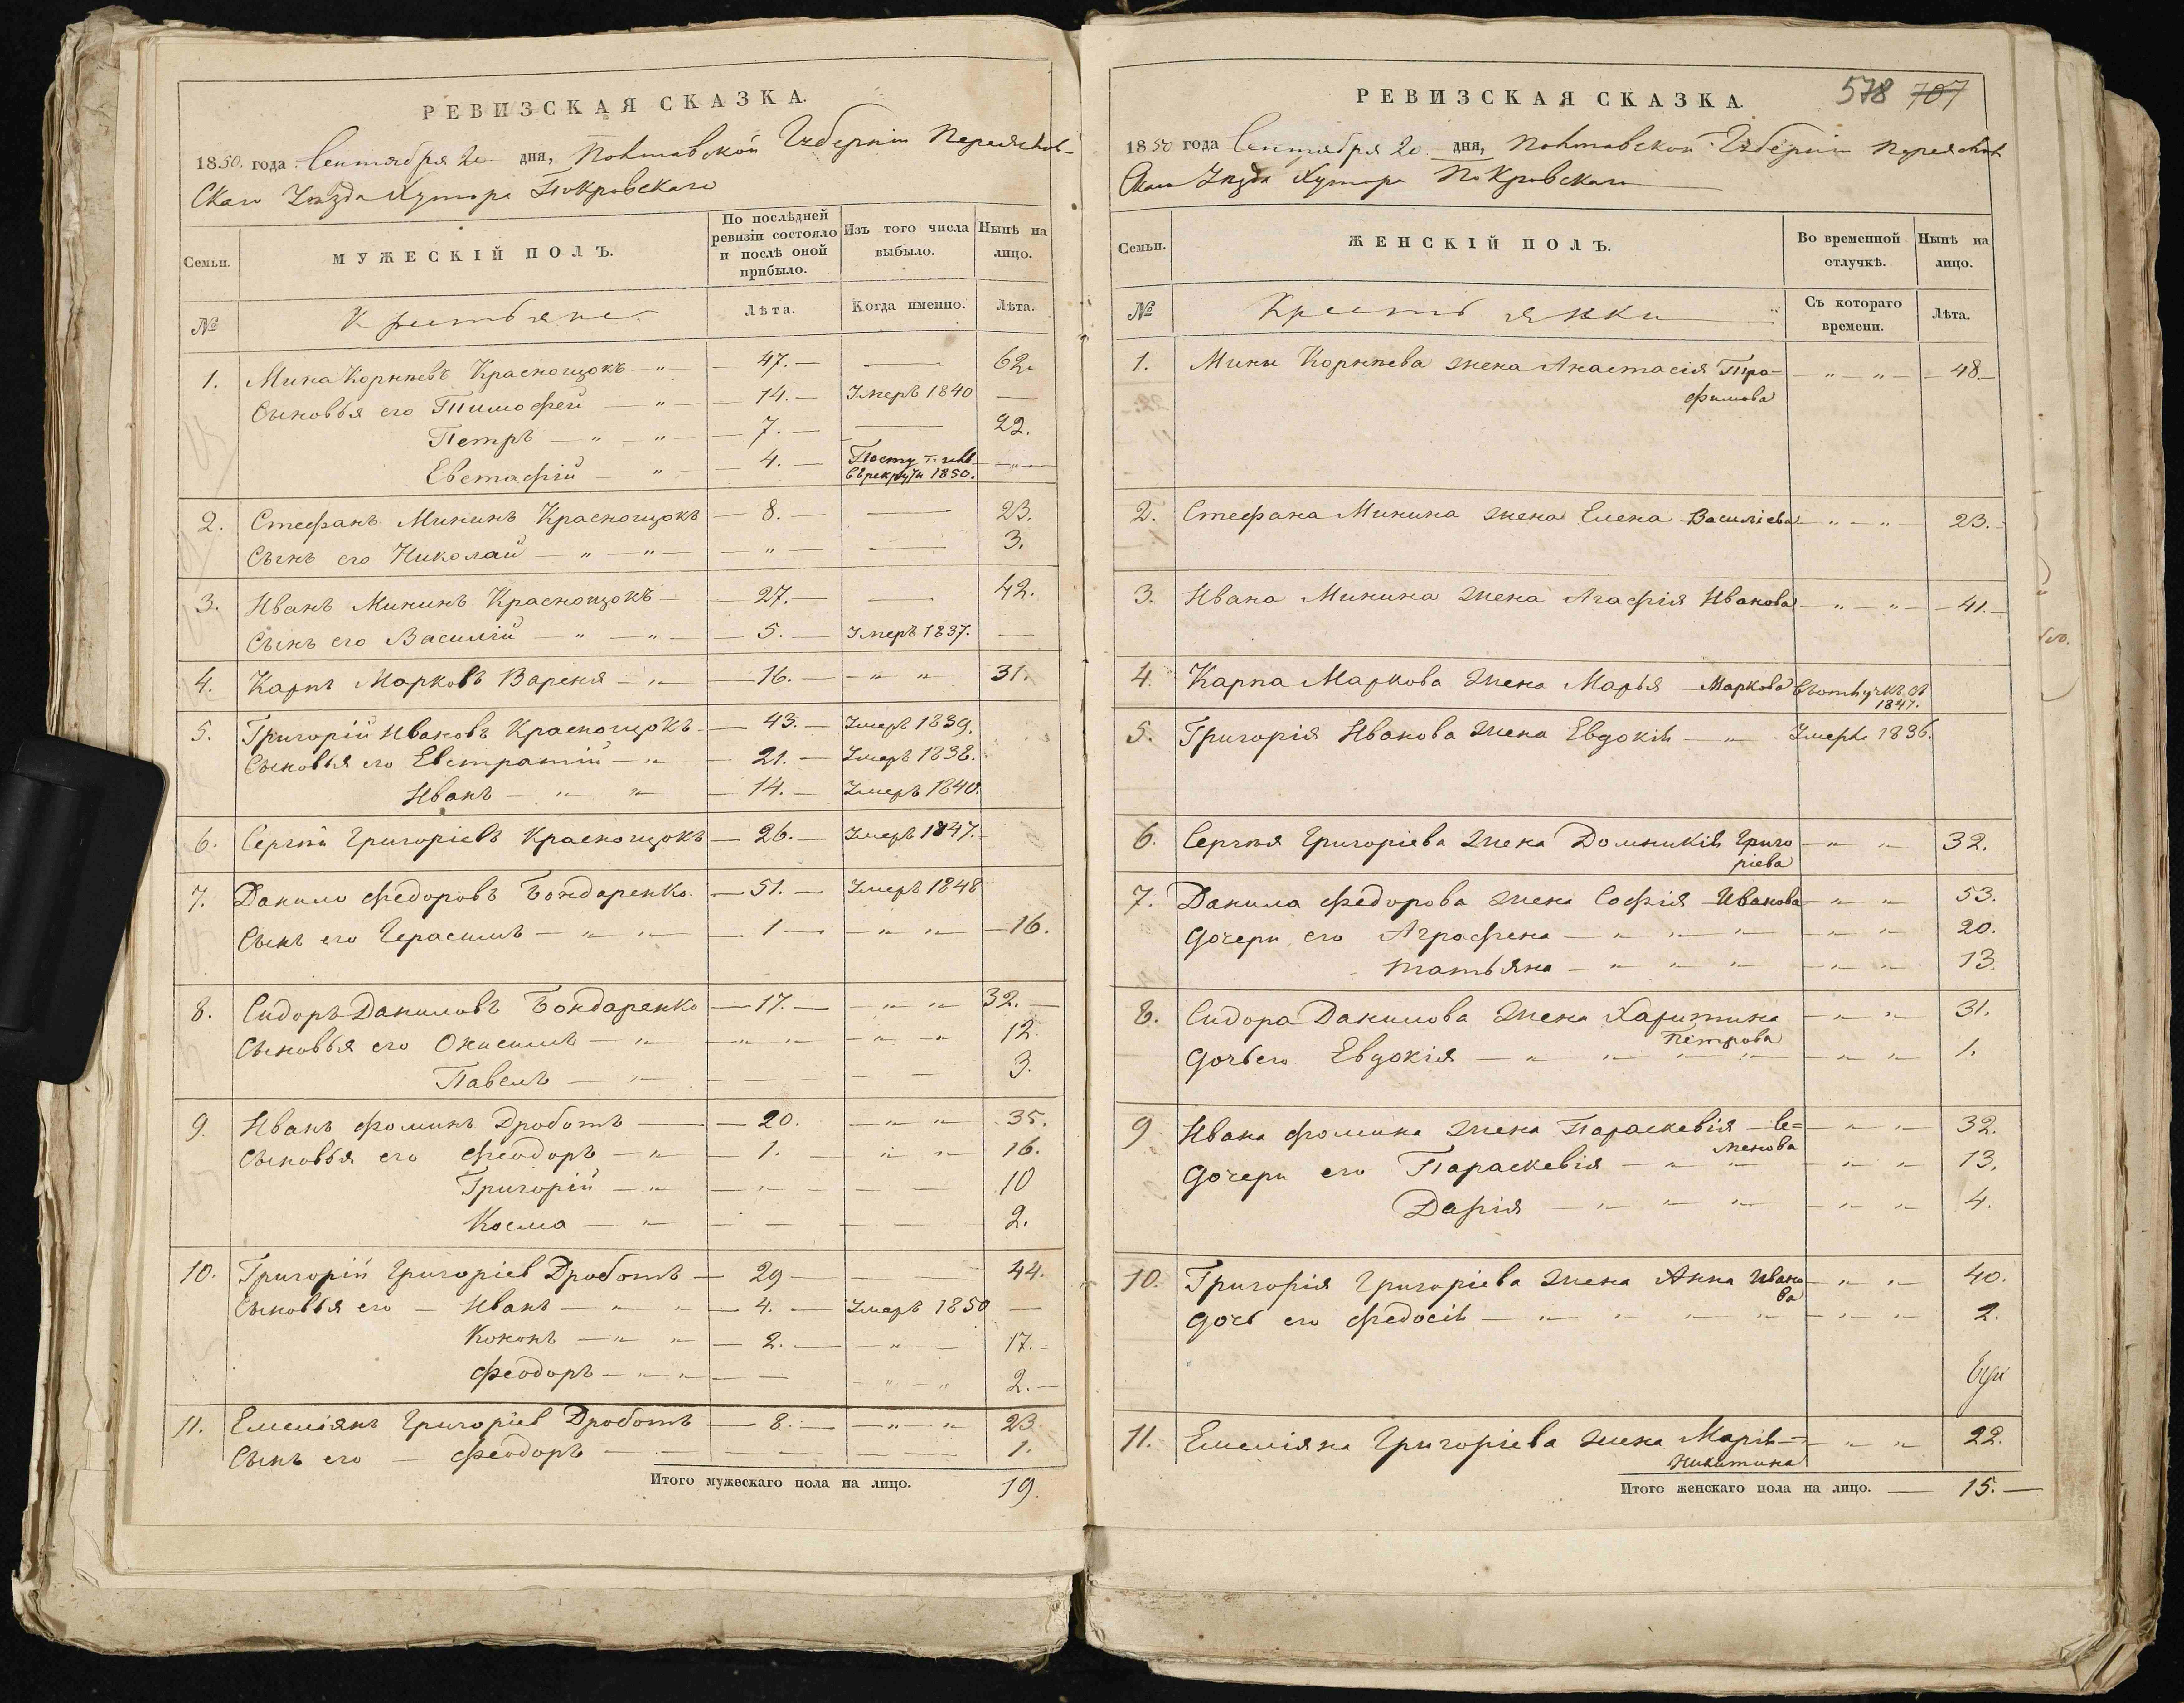 РЕВИЗСКАЯ СКАЗКА.
1850. года Сентября 20 дня, Полтавской Губерніи Переяслов-
Скаго Уезда Хутора Покровскаго
Семьи.
МУЖЕСКІЙ ПОЛЪ.
По послѣдней ревизіи состояло и послѣ оной прибыло.
Изъ того числа выбыло.
Нынѣ на лицо.
№
Крестьяне
Лѣта.
Когда именно.
Лѣта.
1. Мина Корнѣевъ Краснощокъ — " — 47. — 62.
Сыновья его Тимофей — " — 14. — Умеръ 1840 —
Петръ — " — " — 7. — 22.
Евстафій — " — 4. — Поступилъ в рекруты 1850. — " —
2. Стефанъ Мининъ Краснощокъ — 8. — 23.
Сынъ его Николай — " — " — " — 3.
3. Иванъ Мининъ Краснощокъ — 27. — 42.
Сынъ его Василій — " — " — 5. — Умеръ 1837. —
4. Карпъ Марковъ Вареня — " — 16. — " " 31.
5. Григорій Ивановъ Краснощокъ — 43. — Умеръ 1839.
Сыновья его Евстратій — " — 21. — Умеръ 1838.
Иванъ — " — " — 14. — Умеръ 1840.
6. Сергій Григоріевъ Краснощокъ — 26. — Умеръ 1847.
7. Данило Федоровъ Бондаренко — 51. — Умеръ 1848
Сынъ его Герасимъ — " — " — 1 — " " — 16.
8. Сидоръ Даниловъ Бондаренко — 17. — " " 32. —
Сыновья его Онисимъ — " — " " — " " 12.
Павелъ — " — 3.
9. Иванъ Фоминъ Дроботъ — 20. — " " 35.
Сыновья его Феодоръ — " — 1. — " " 16.
Григорій — " — " — 10
Косма — " — 2.
10. Григорій Григоріев Дроботъ — 29 — 44.
Сыновья его — Иванъ — " — " — 4. — Умеръ 1850 —
Кононъ — " " — 2. — " — 17. —
Феодоръ — " " — " " 2. —
11. Емеліянъ Григоріев Дроботъ — 8. — " " 23
Сынъ его — Феодоръ — 1.
Итого мужескаго пола на лицо. 19.
РЕВИЗСКАЯ СКАЗКА.
578 707
1850 года Сентября 20 дня, Полтавской Губерніи Переяслов
Скаго Уезда Хутора Покровскаго
Семьи.
ЖЕНСКІЙ ПОЛЪ.
Во временной отлучкѣ.
Нынѣ на лицо.
№
Крестьянки
Съ котораго времени.
Лѣта.
1. Мины Корнѣева жена Анастасія Тро- — " — " — 48. —
фимова
2. Стефана Минина жена Елена Василіева — " — " — 23. —
3. Ивана Минина жена Агафія Иванова — " — " — 41. —
4. Карпа Маркова жена Марья — Маркова Въ отлучкѣ съ
1847.
5. Григорія Иванова жена Евдокія — " Умерла 1836.
6. Сергѣя Григоріева жена Домникія Григо — " " 32.
ріева
7. Данила Федорова жена Софія Иванова — " " 53.
Дочери его Аграфена — " — " — " — " " 20.
Татьяна — " — " — " — " " 13.
8. Сидора Данилова жена Харитина — " " 31.
Петрова
Дочь его Евдокія — " " — " " — " " 1.
9 Ивана Фомина жена Параскевія — Се= — " " 32.
менова
Дочери его Параскевія — " — " — " " 13.
Дарія — " " " — " " 4.
10. Григорія Григоріева жена Анна Ивано — " " 40.
ва
Дочь его Федосія — " " " " — " " 2.
11. Емеліяна Григоріева жена Марія — " " 22.
Никитина
Итого женскаго пола на лицо. — 15. —